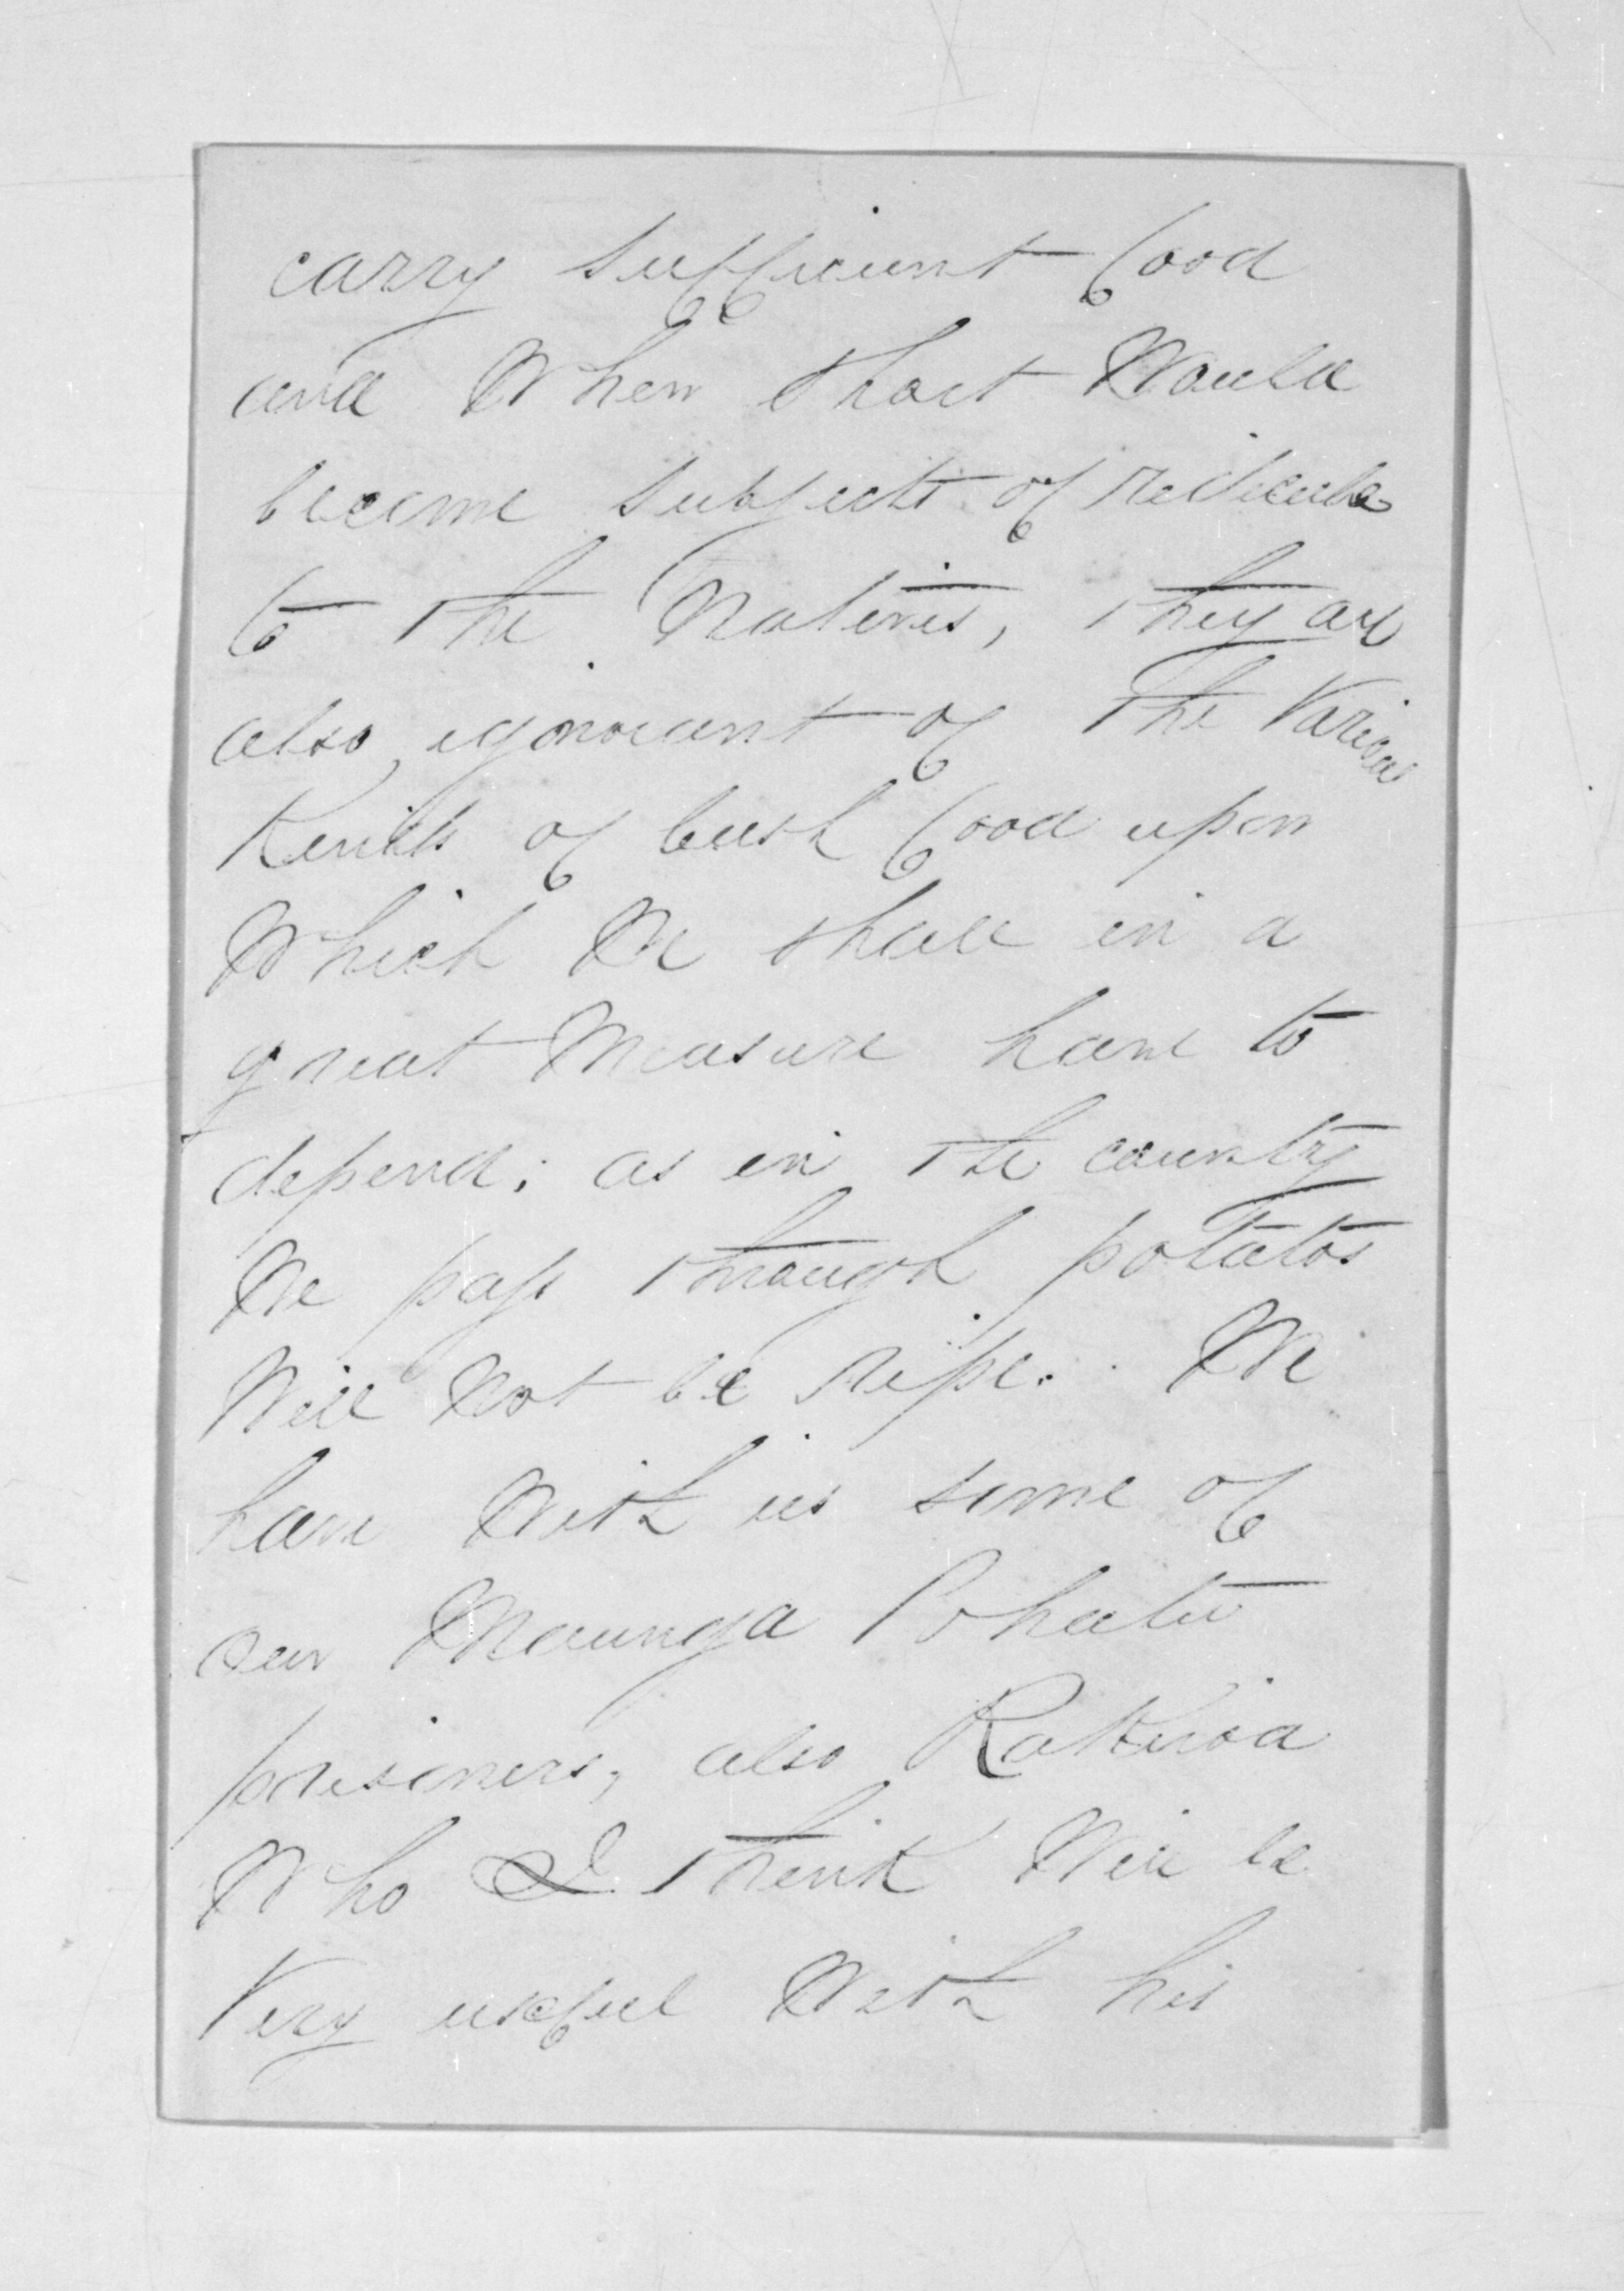 carry sufficient food
and when short would
become subjects of ridicule
to the Natives, they are
also, ignorant of the various
kinds of bush food upon
which we shall in a
great measure have to
depend; as in the country
we pass through potatos
will not be ripe. We
have with us some of
our Maunga Pohatu
prisoners, also Rakiroa
who I think will be
very useful with his